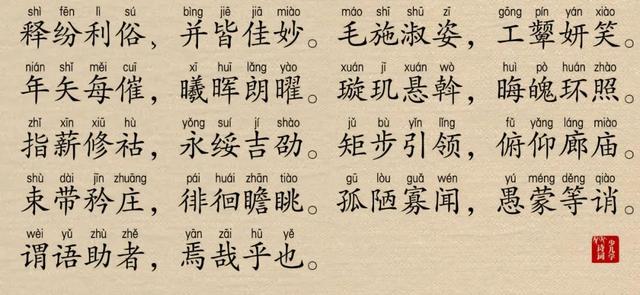 shì fēn lì sú bìng jiē jiā miào máo shī shū zī gōng pín yán xiào
释纷利俗，并皆佳妙。毛施淑姿，工颦妍笑。
nián shǐ měi cuī xī huī lǎng yào xuán jī xuán wò huì pò huán zhào
年矢每催，曦晖朗曜。璇玑悬斡，晦魄环照。
zhǐ xīn xiū hù yǒng suí jí shào jǔ bù yǐn lǐng fǔ yǎng láng miào
指薪修祜，永绥吉劭。矩步引领，俯仰廊庙。
shù dài jīn zhuāng pái huái zhān tiào gū lòu guǎ wén yú méng děng qiào
束带矜庄，徘徊瞻眺。孤陋寡闻，愚蒙等诮。
wèi yǔ zhù zhě yān zāi hū yě
谓语助者，焉哉乎也。
少儿学
诗词